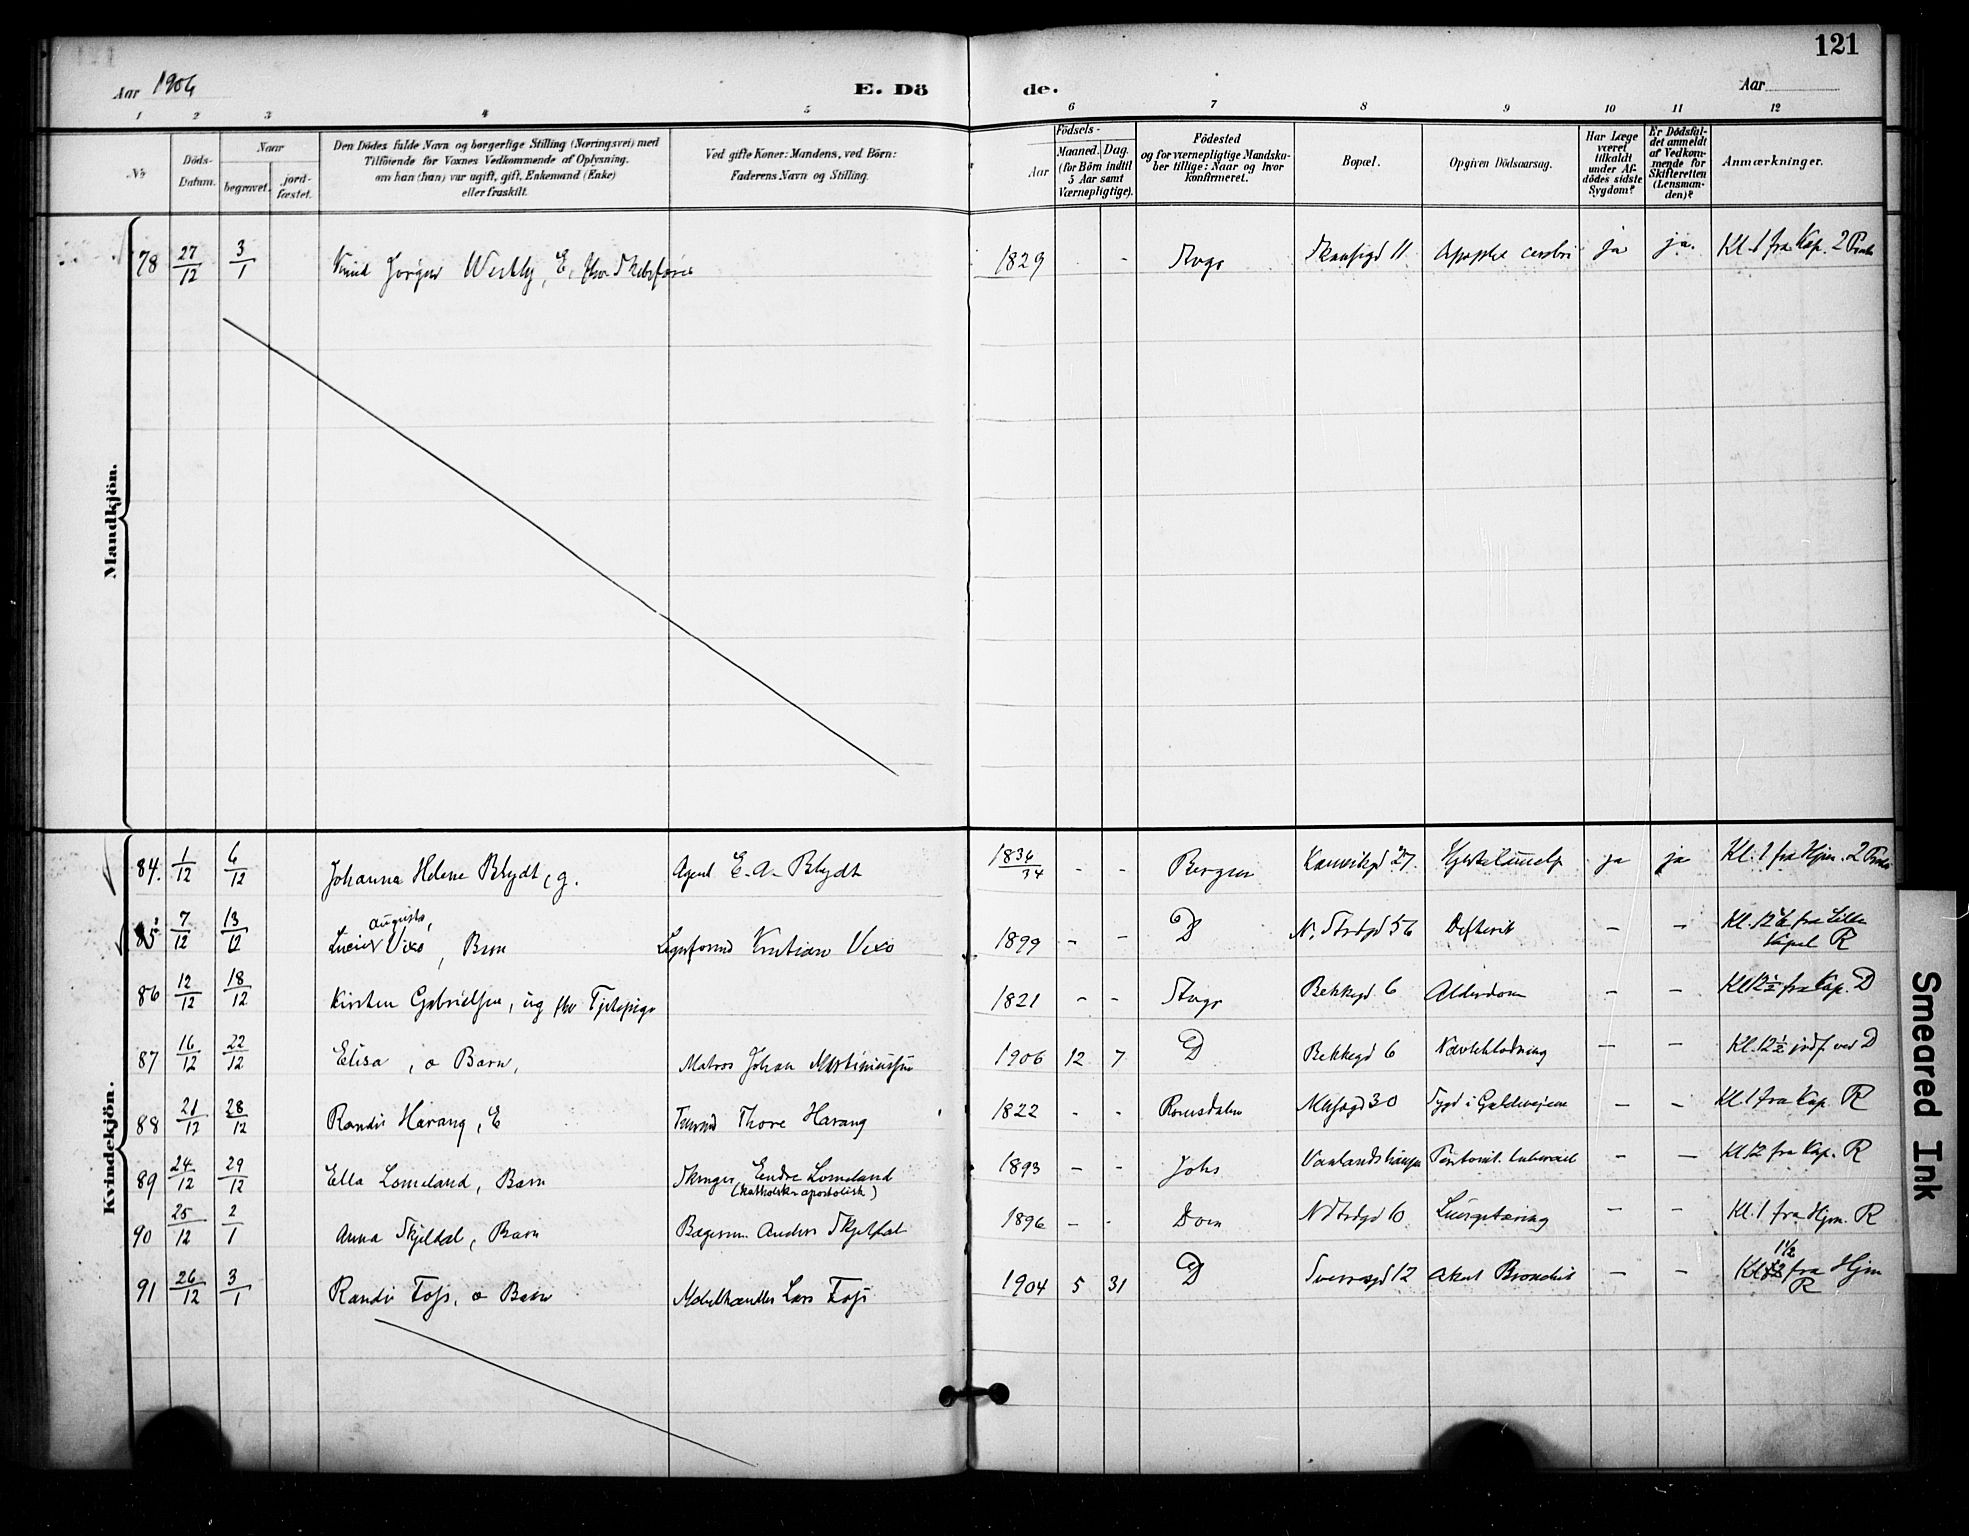 121
Aar 1906
E. Dö
de.
Aar
1 2 3 4 5 6 7 8 9 10 11 12
No
Döds-Datum.
Naar
begravet.
jord-fæstet.
Den Dödes fulde Navn og borgerlige Stilling (Næringsvei) med
Tilföiende for Voxnes Vedkommende af Oplysning,
om han (hun) var ugift, gift, Enkemand (Enke)
eller fraskilt.
Ved gifte Koner: Mandens, ved Börn:
Faderens Navn og Stilling.
Födsels-
Aar
Maaned. Dag.
(for Börn indtil
5 Aar samt
Værnepligtige).
Födested
og for værnepligtige Mandska-
ber tillige: Naar og hvor
konfirmeret.
Bopæl.
Opgiven Dödsaarsag.
Har Læge
været
tilkaldt
under Af-
dödes sidste
Sygdom?
Er Dödsfal-
det anmeldt
af Vedkom-
mende for
Skifteretten
(Lensman-
den)?
Anmærkninger.
Mandkjön.
78 27/12 3/1 Knud Jörgen Westby, E, 1829 - - Skansegd 11 ja ja. Kl. 1 fra Kap. 2
Kvindekjön.
84. 1/12 6/12 Johanna Helene Blydt, g. Agent E. A. Blydt 1834 - - Bergen 27 ja ja Kl. 1 fra Hjm. 2
85 7/12 13/12 Augusta, Vixø, Barn Kristian Vixø 1899 - - D N. Strdgd 56 Difterit - - Kl. 12 ½ fra Lille
Kapel R
86 12/12 18/12 Kirsten Gabrielsen, ug fhv Tjstepige 1821 - - Bekkegd 6 Alderdom - - Kl 12 ½ fra Kap. D
87 16/12 22/12 Elisa, o Barn, Matros Johan Martiniussen 1906 12 7 D Bekkegd 6 - - Kl. 12 ½ indf. ved D
88 21/12 28/12 Randi Harang, E Thore Harang 1822 - - Romsdalen 30 Sygd i Galdeveiene - - Kl 1 fra Kap. R
89 24/12 29/12 Ella Lomeland, Barn Endre Lomeland
(katholsk apostolisk) 1893 - - Johs - - Kl 12 fra Kap. R
90 25/12 2/1 Anna Skjeldal, Barn Bagersv. Anders Skjeldal 1896 - - Dom N Strdgd 10 Lungetæring - - Kl. 1 fra Hjm. R
91 26/12 3/1 Randi Foss, o Barn Møbelhandler Lars Foss 1904 5 31 D Sverresgd 12 akut Bronchit - - 1½
Kl 12 fra Hjm
R
Smeared Ink